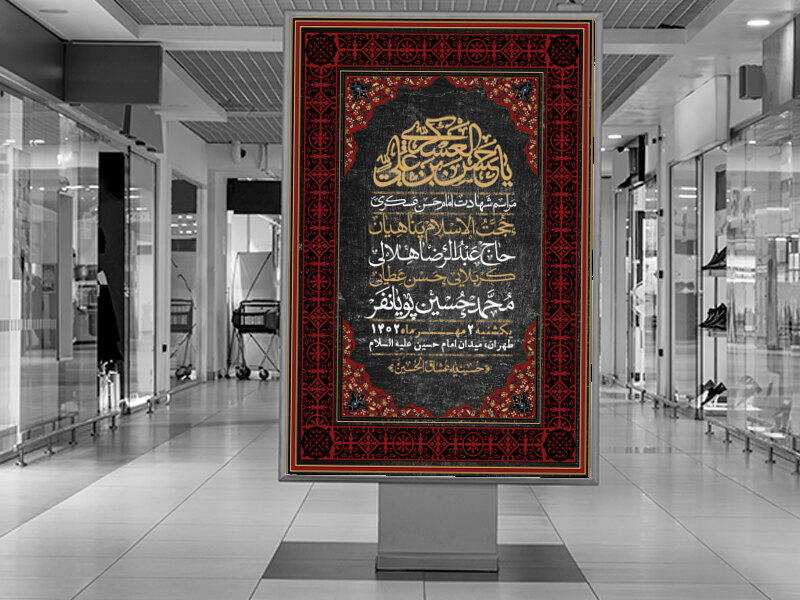 یا حسن بن علی العسکری
مراسم شهادت امام حسن عسکری
حجت الاسلام پناهیان
حاج عبدالرضا هلالی
کربلایی حسن عطایی
محمد حسین پویانفر
یکشنبه ۲ مهر ماه ۱۴۰۲
طهران، میدان امام حسین علیه السلام
«حسینیه عشاق الحسین»